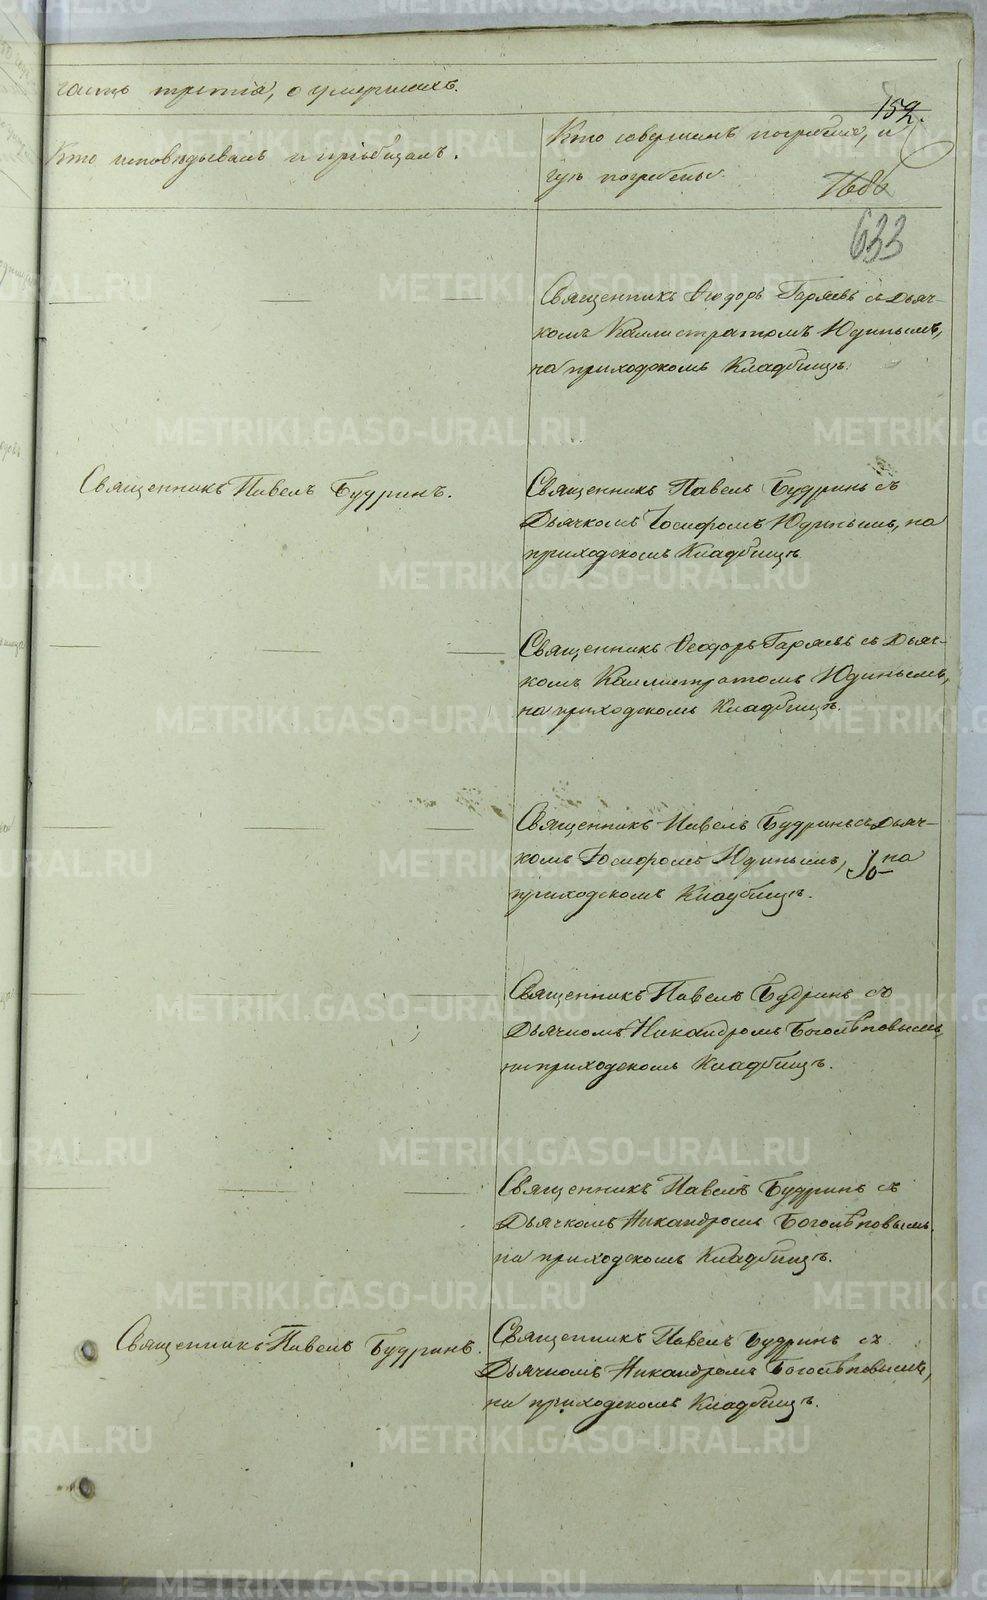 часть третія, о умершихъ.
159.
Кто исповѣдывалъ и пріобщалъ.
Кто совершалъ погребеніе, и
гдѣ погребены.
633
Священникъ Ѳеодоръ Гаряевъ съ Дьяч-
комъ Каллистратомъ Юдинымъ,
на приходскомъ Кладбищѣ.
Священникъ Павелъ Будринъ.
Священникъ Павелъ Будринъ съ
Дьячкомъ Іосифомъ Юдинымъ, на
приходскомъ Кладбищѣ
Священникъ Ѳеодоръ Гаряевъ съ Дьяч-
комъ Каллистратомъ Юдинымъ,
на приходскомъ Кладбищѣ.
Священникъ Павелъ Будринъ съ Дьяч-
комъ Іосифомъ Юдинымъ, на
приходскомъ Кладбищѣ.
Священникъ Павелъ Будринъ съ
Дьячкомъ Никандромъ Боголѣповымъ,
на приходскомъ Кладбищѣ.
Священникъ Павелъ Будринъ съ
Дьячкомъ Никандромъ Боголѣповымъ.
на приходскомъ Кладбищѣ.
Священникъ Павелъ Будринъ.
Священникъ Павелъ Будринъ съ
Дьячкомъ Никандромъ Боголѣповымъ,
на приходскомъ Кладбищѣ.
METRIKI.GASO-URAL.RU